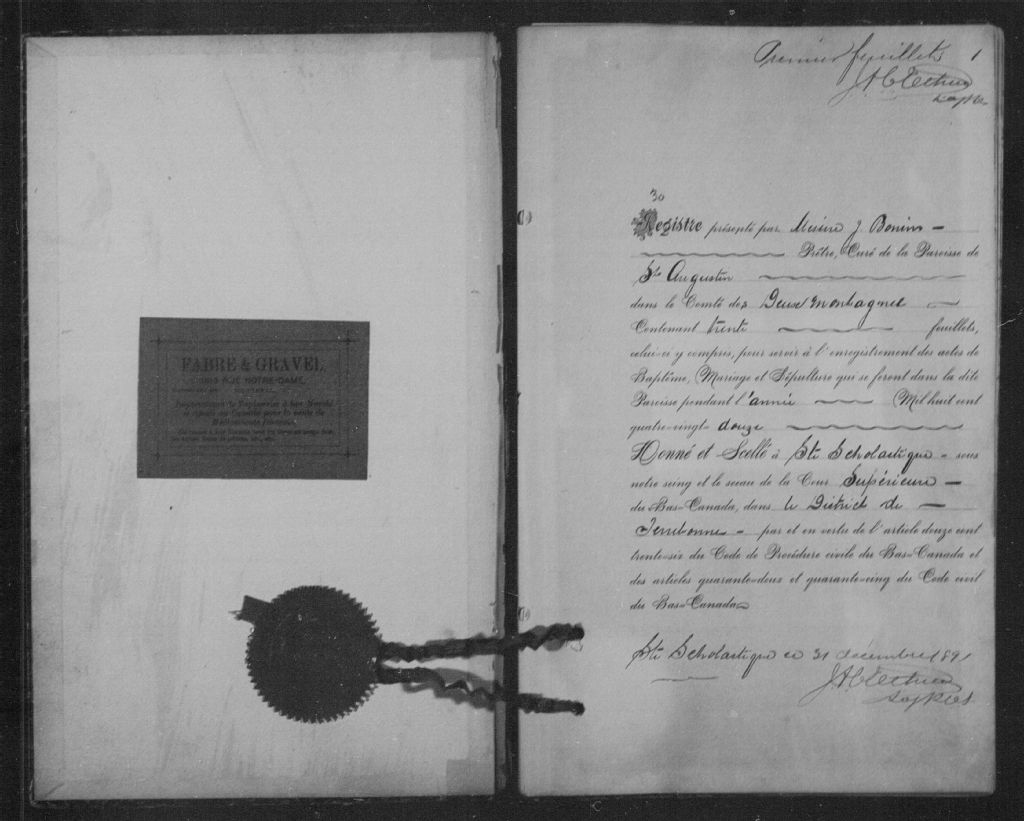 FABRE & GRAVEL
RUE NOTRE-DAME,
Premier feuillets 1
30
Registre présenté par Messire J. Bonin
Prêtre, Curé de la Paroisse de
Ste Augustin
dans le Comté des Deux Montagnes
Contenant trente feuillets,
celui-ci y compris, pour servir à l'enregistrement des actes de
Baptême, Mariage et Sépulture qui se feront dans la dite
Paroisse pendant l'année Mil huit cent
quatre-vingt- douze
Donné et Scellé à Ste Scholastique - sous
notre seing et le sceau de la Cour Supérieure
du Bas-Canada, dans le District de
Terrebonne - par et en vertu de l'article douze cent
trente-six du Code de Procédure civile du Bas-Canada et
des articles quarante-deux et quarante-cinq du Code civil
du Bas-Canada
Ste Scholastique ce 31 décembre 1891